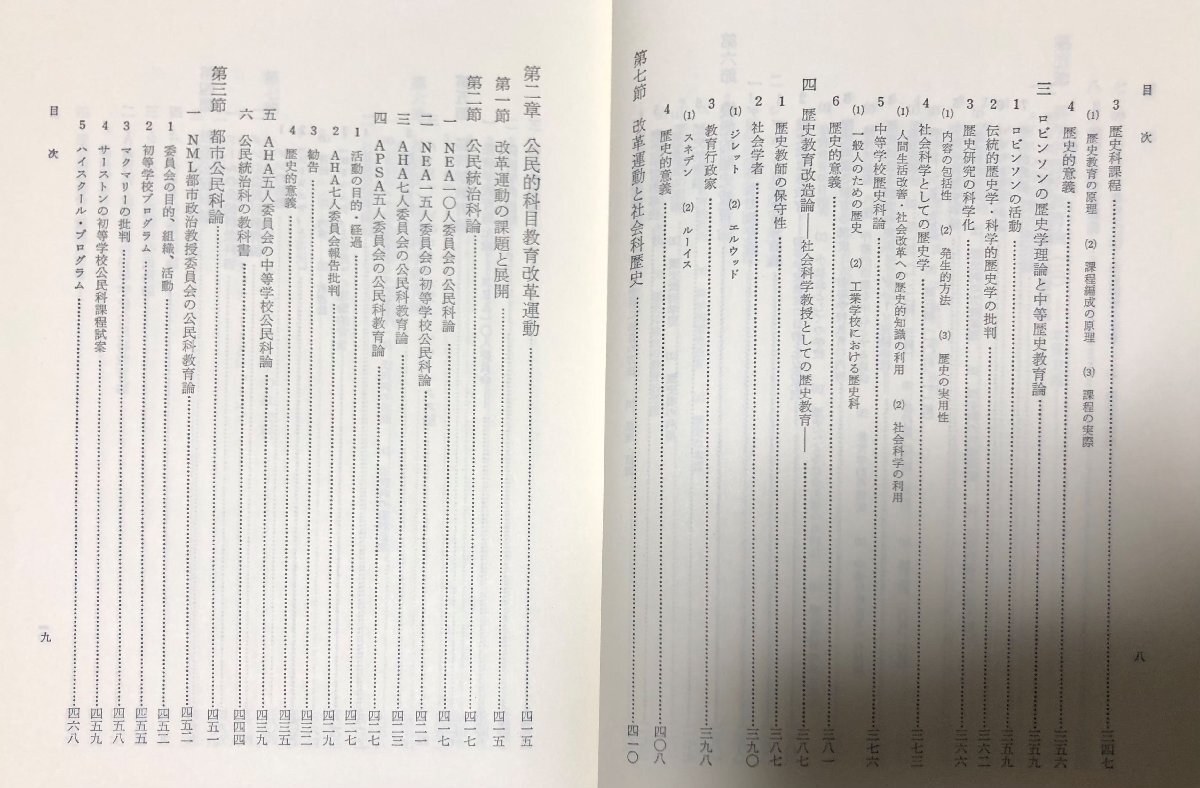 目次
3 歴史科課程……三四七
(1) 歴史教育の原理 (2) 課程編成の原理 (3) 課程の実際
4 歴史的意義……三五六
三 ロビンソンの歴史学理論と中等歴史教育論……三五九
1 ロビンソンの活動……三五九
2 伝統的歴史学・科学的歴史学の批判……三六二
3 歴史研究の科学化……三六六
(1) 内容の包括性 (2) 発生的方法 (3) 歴史の実用性
4 社会科学としての歴史学……三七三
(1) 人間生活改善・社会改革への歴史的知識の利用 (2) 社会科学の利用
5 中等学校歴史科論……三七六
(1) 一般人のための歴史 (2) 工業学校における歴史科
6 歴史的意義……三八一
四 歴史教育改造論——社会科学教授としての歴史教育——……三八七
1 歴史教師の保守性……三八七
2 社会学者……三九〇
(1) ジレット (2) エルウッド
3 教育行政家……三九八
(1) スネデン (2) ルーイス
4 歴史的意義……四〇八
第七節 改革運動と社会科歴史……四一〇
八
第二章 公民的科目教育改革運動……四一五
第一節 改革運動の課題と展開……四一五
第二節 公民統治科論……四一七
一 NEA一〇人委員会の公民科論……四一七
二 NEA一五人委員会の初等学校公民科論……四二一
三 AHA七人委員会の公民科教育論……四二三
四 APSA五人委員会の公民科教育論……四二七
1 活動の目的・経過……四二七
2 AHA七人委員会報告批判……四二九
3 勧告……四三二
4 歴史的意義……四三五
五 AHA五人委員会の中等学校公民科論……四三九
六 公民統治科の教科書……四四四
第三節 都市公民科論……四五一
一 NML都市政治教授委員会の公民科教育論……四五二
1 委員会の目的、組織、活動……四五二
2 初等学校プログラム……四五五
3 マクマリーの批判……四五八
4 サーストンの初等学校公民科課程試案……四五九
5 ハイスクール・プログラム……四六八
目次
九